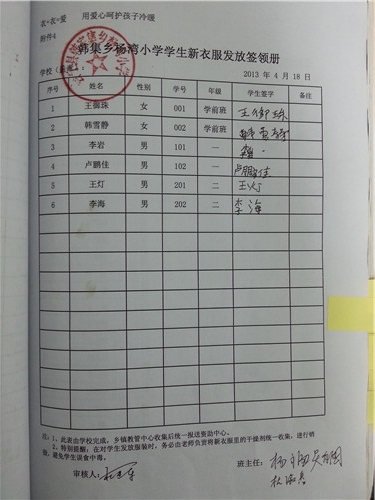 衣+衣=爱 用爱心呵护孩子冷暖
附件4
韩集乡杨湾小学学生新衣服发放签领册
学校(盖章) 2013 年 4 月 18 日
序号 姓名 性别 学号 年级 学生签字 备注
1 王御珠 女 001 学前班 王御珠
2 韩雪静 女 002 学前班 韩雪静
3 李岩 男 101 一
4 卢鹏佳 男 102 一 卢鹏佳
5 王灯 男 201 二 王灯
6 李海 男 202 二 李海
注:1、此表由学校完成,乡镇教管中心收集后统一报送资助中心。
2、特别提醒:在对学生发放服装时,务必由老师负责将新衣服里的干燥剂统一收集,进行销
毁,避免学生误食中毒。
审核人: 班主任: